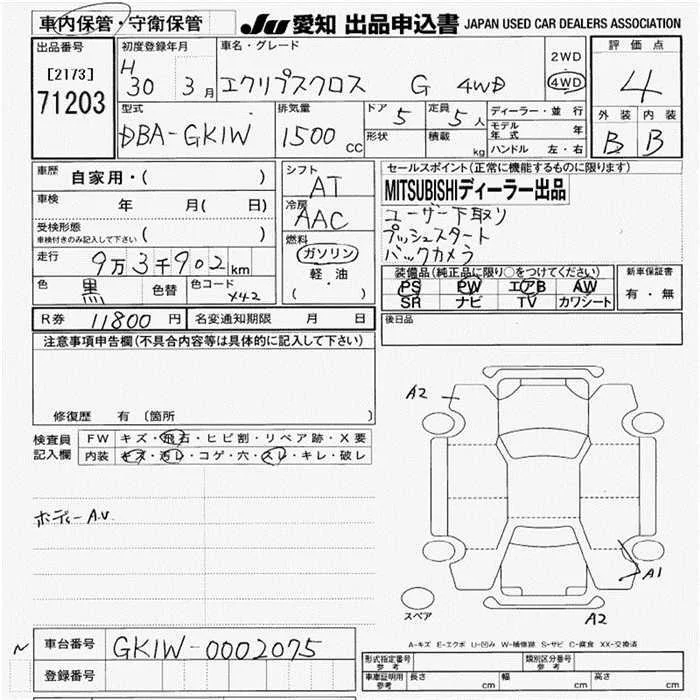 車内保管・守衛保管
JU 愛知 出品申込書 JAPAN USED CAR DEALERS ASSOCIATION
出品番号 初度登録年月 車名・グレード 2WD 評価点
[2173] H 4WD 4
71203 30 3月 エクリプスクロス G 4WD
外装 内装
B B
型式 排気量 ドア 5 定員 5人 ディーラー・並行
DBA-GK1W 1500cc 形状 積載 kg モデル年式 年
ハンドル 左・右
車歴 自家用・( )
車検 年 月( 日)
受検形態 ( )
車検付きのみ記入して下さい
走行 9万3千902km
色 黒 色替 色コード X42
シフト AT
冷房 AAC
燃料 ガソリン
軽・油
( )
セールスポイント(正常に機能するものに限ります)
MITSUBISHIディーラー出品
ユーザー下取り
プッシュスタート
バックカメラ
装備品(純正品に限り○をつけてください) 新車保証書
PS PW エアB AW 有・無
SR ナビ TV カワシート
R券 11800円 名変通知期限 月 日 後日品
注意事項申告欄(不具合内容等は具体的に記入して下さい)
修復歴 有 〔箇所 〕
検査員 FW キズ・飛石・ヒビ割・リペア跡・X要
記入欄 内装 キズ・汚レ・コゲ・穴・スレ・キレ・破レ
A2
ボディーA.U.
A1
スペア A2
A-キズ E-エクボ U-凹み W-補修跡 S-サビ C-腐食 XX-交換済
車台番号 GK1W-0002075
登録番号
形式指定番号 参考 類別区分番号 参考
車庫証明用 参考 長さ cm 幅 cm 高さ cm